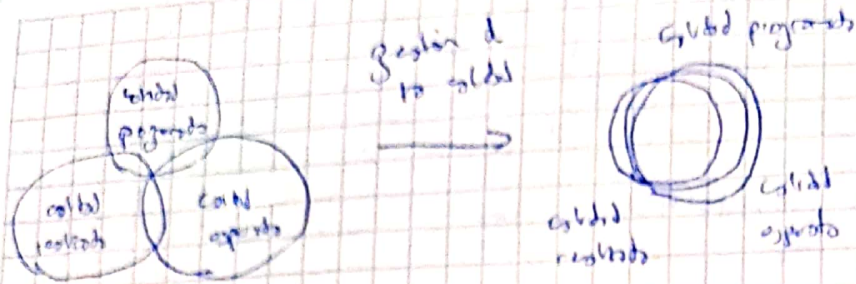 calidad
programada
calidad
realizada
calidad
esperada
gestión d
la calidad
calidad programada
calidad
realizada
calidad
esperada